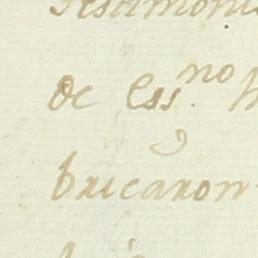 Testimoni
de Ess.no
bricaron